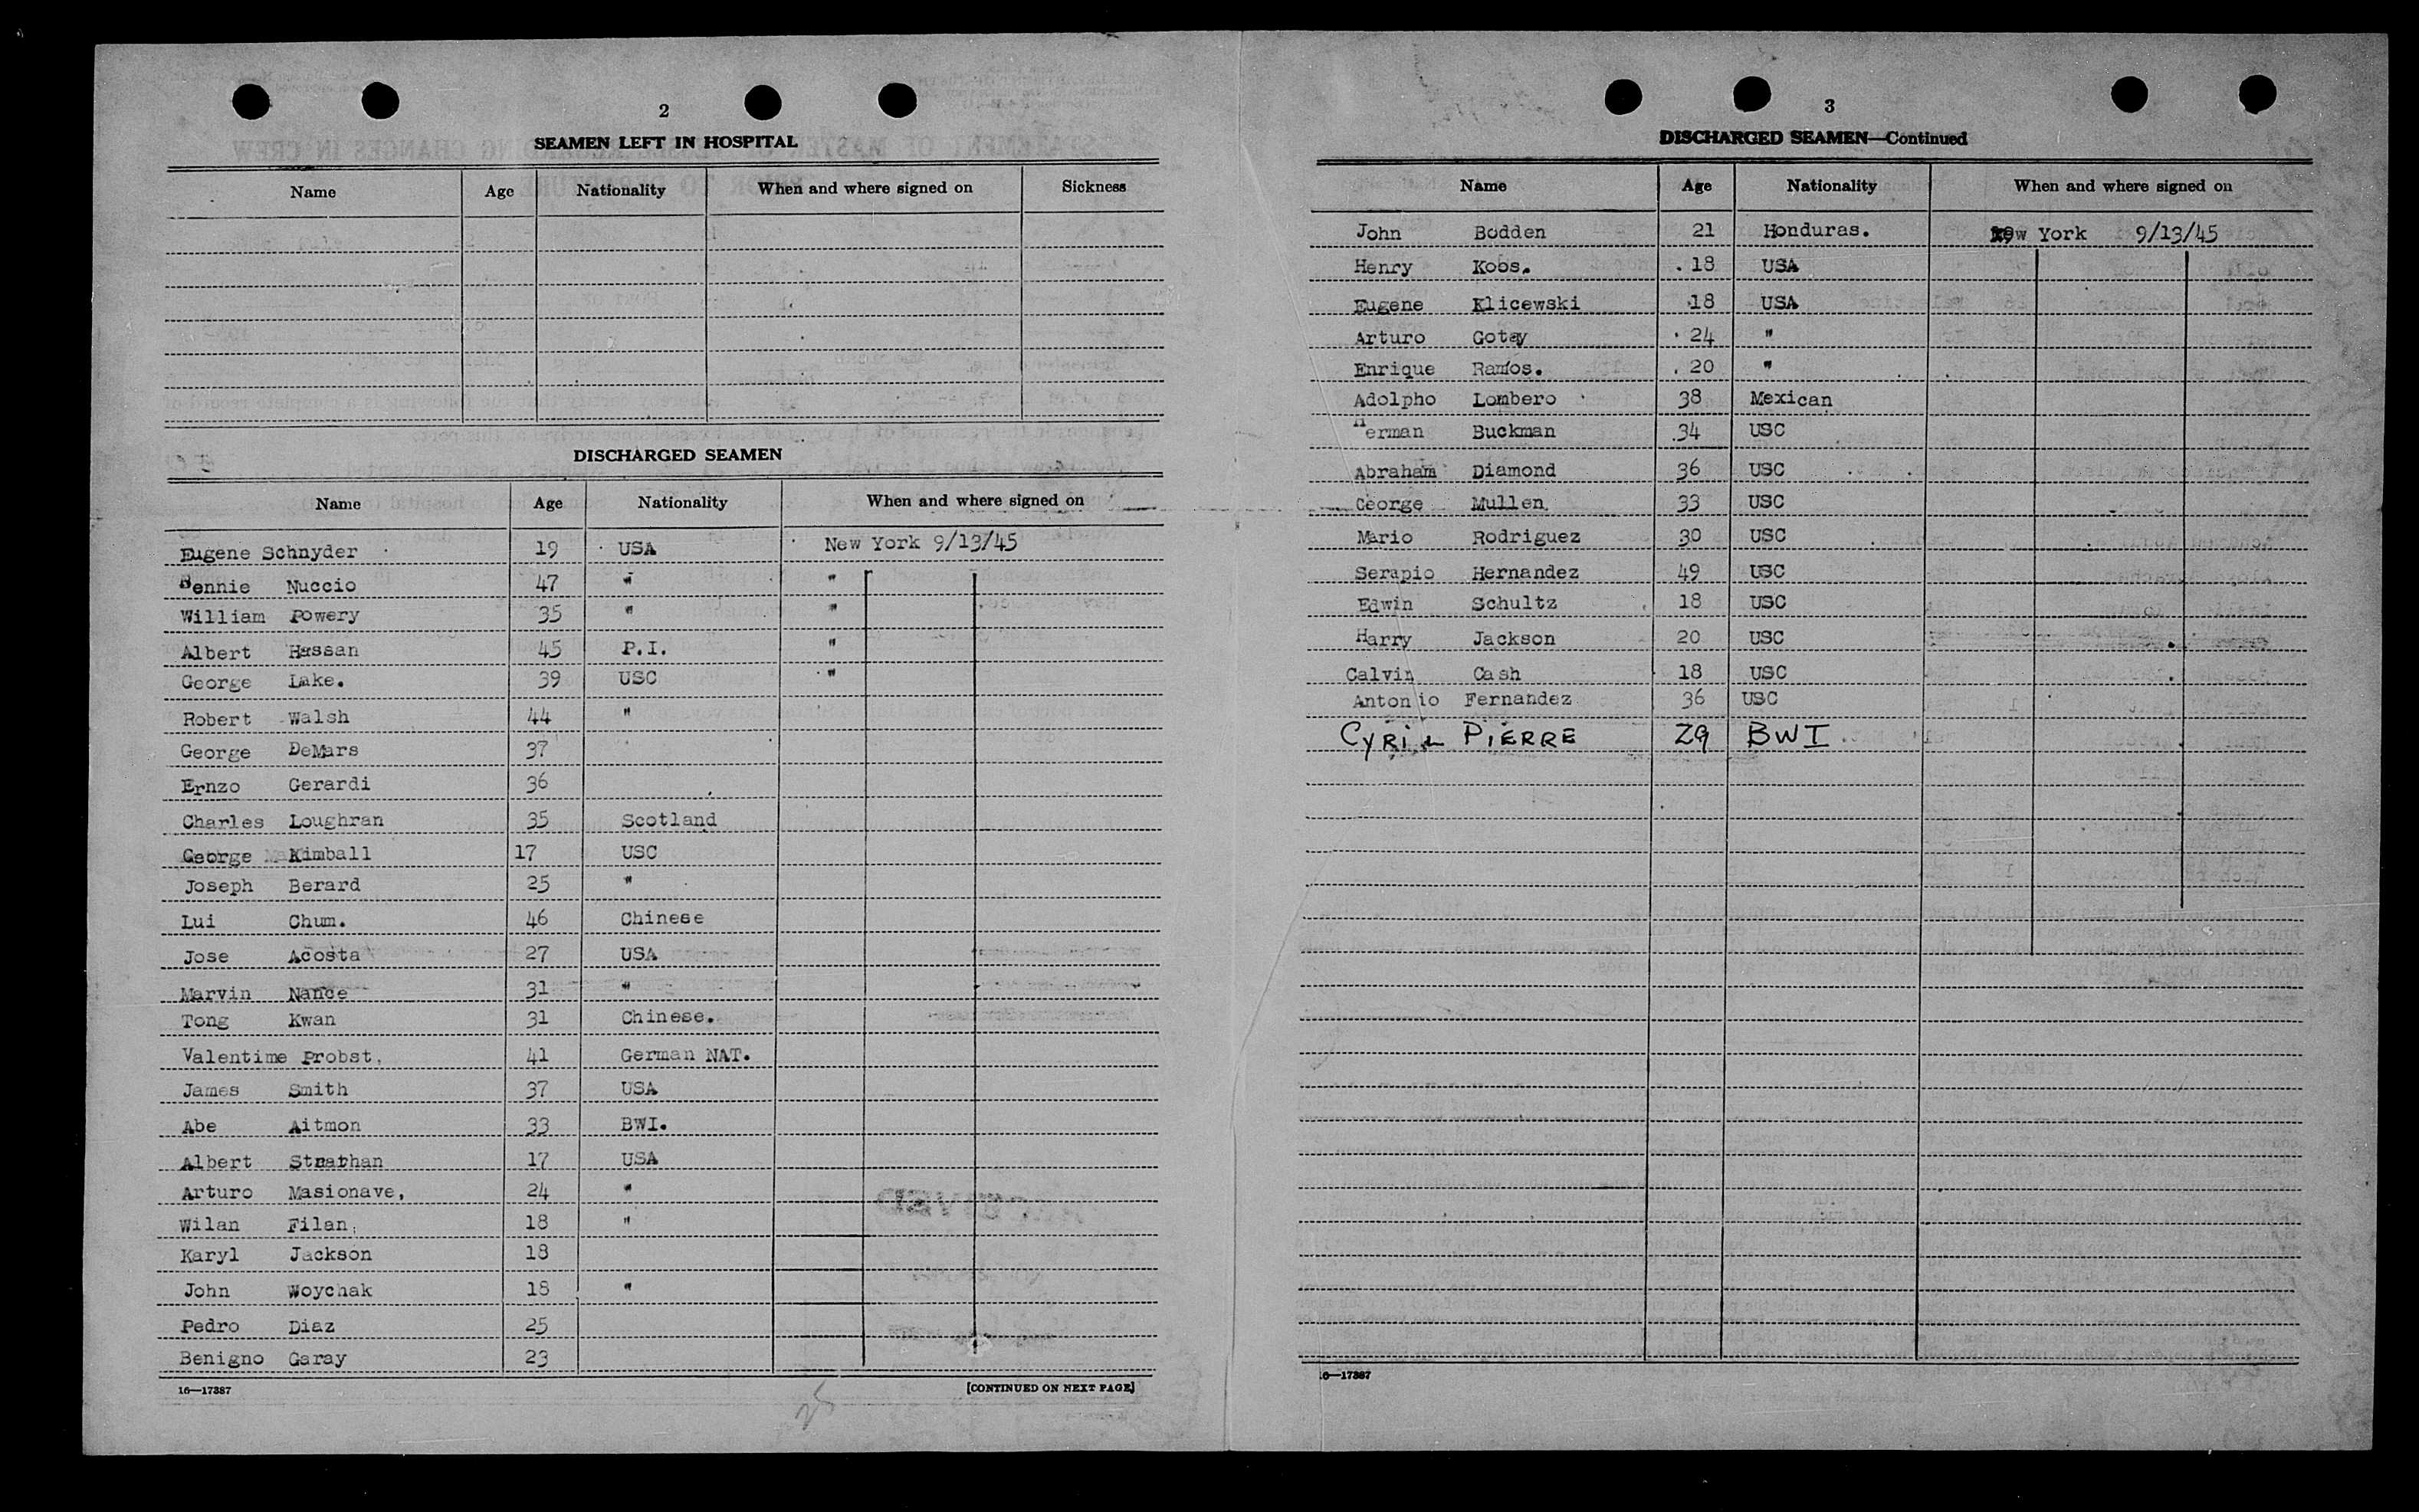 2
SEAMEN LEFT IN HOSPITAL
Name Age Nationality When and where signed on Sickness
DISCHARGED SEAMEN
Name Age Nationality When and where signed on
Eugene Schnyder 19 USA New York 9/13/45
Bennie Nuccio 47 " "
William Powery 35 " "
Albert Hassan 45 P.I. "
George Lake. 39 USC "
Robert Walsh 44 "
George DeMars 37
Ernzo Gerardi 36
Charles Loughran 35 Scotland
George Kimball 17 USC
Joseph Berard 25 "
Lui Chum. 46 Chinese
Jose Acosta 27 USA
Marvin Nance 31 "
Tong Kwan 31 Chinese.
Valentime Probst, 41 German NAT.
James Smith 37 USA
Abe Aitmon 33 BWI.
Albert Strathan 17 USA
Arturo Masionave, 24 "
Wilan Filan, 18 "
Karyl Jackson 18
John Woychak 18 "
Pedro Diaz 25
Benigno Garay 23
16—17387 [CONTINUED ON NEXT PAGE]
25
3
DISCHARGED SEAMEN—Continued
Name Age Nationality When and where signed on
John Bodden 21 Honduras. New York 9/13/45
Henry Kobs. 18 USA
Eugene Klicewski 18 USA
Arturo Gotay 24 "
Enrique Ramos. 20 "
Adolpho Lombero 38 Mexican
Herman Buckman 34 USC
Abraham Diamond 36 USC
George Mullen 33 USC
Mario Rodriguez 30 USC
Serapio Hernandez 49 USC
Edwin Schultz 18 USC
Harry Jackson 20 USC
Calvin Cash 18 USC
Antonio Fernandez 36 USC
CYRIL PIERRE 29 BWI
16—17387